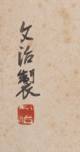 文治製